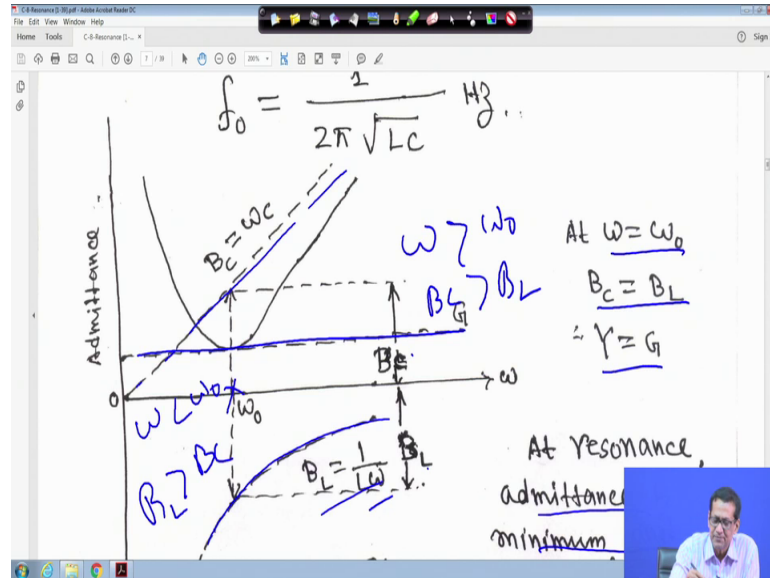 C-8-Resonance [1-39].pdf - Adobe Acrobat Reader DC
File Edit View Window Help
Home Tools C-8-Resonance [1-... × Sign
7 / 39 200%
f₀ = 1 / 2π √LC Hz..
Admittance
B_C = ωC
ω > ω₀
B_C > B_L
G
At ω = ω₀
B_C = B_L
∴ Y = G
0
ω
ω < ω₀
ω₀
B_L > B_C
B_L = 1/Lω
B_L
At resonance,
admittance
minimum